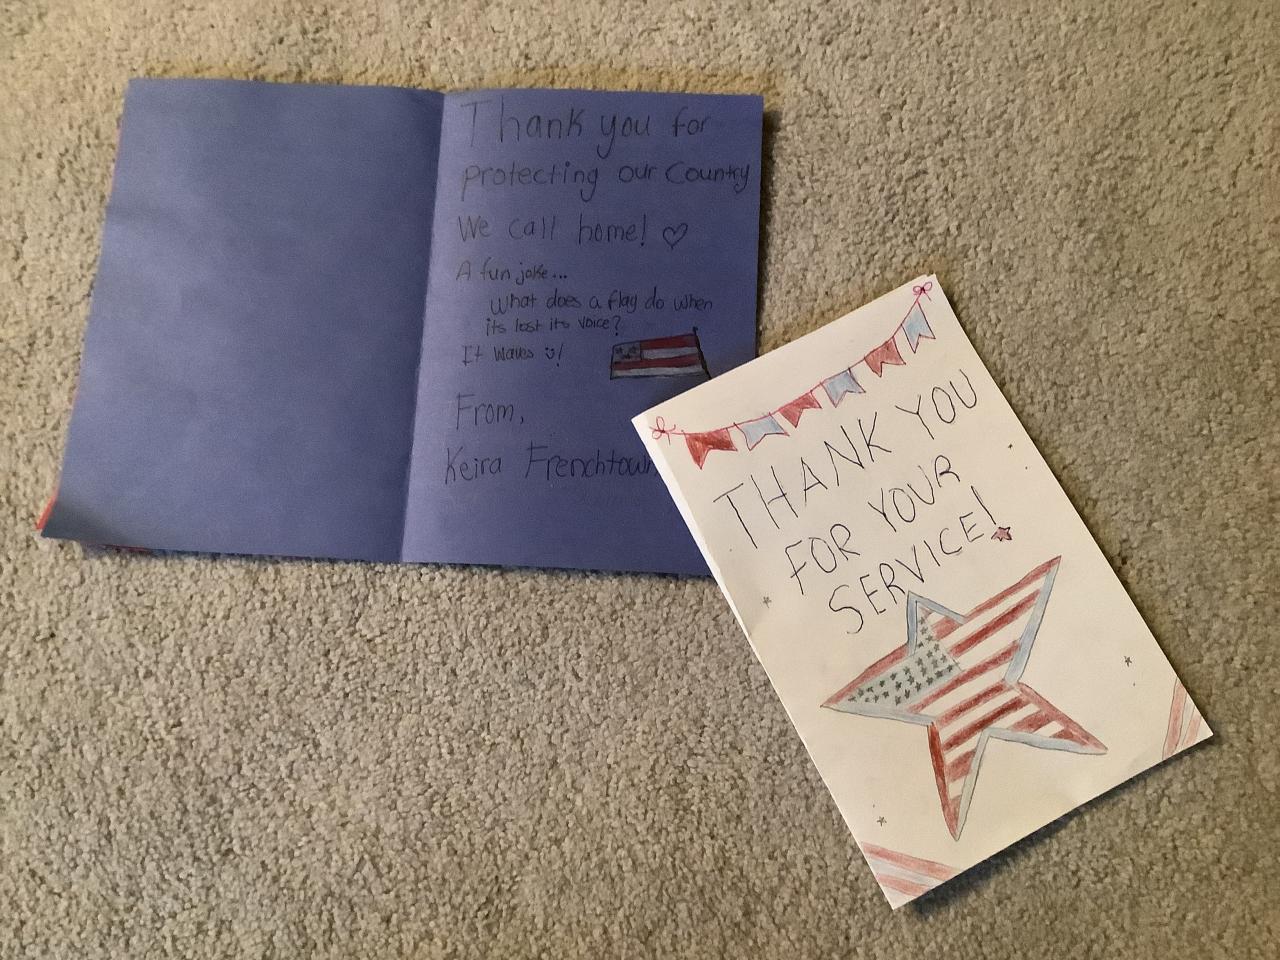 Thank you for
protecting our Country
We call home!
A fun joke...
What does a flag do when
its lost its voice?
It waves :)!
From,
Keira Frenchtown
THANK YOU
FOR YOUR
SERVICE!